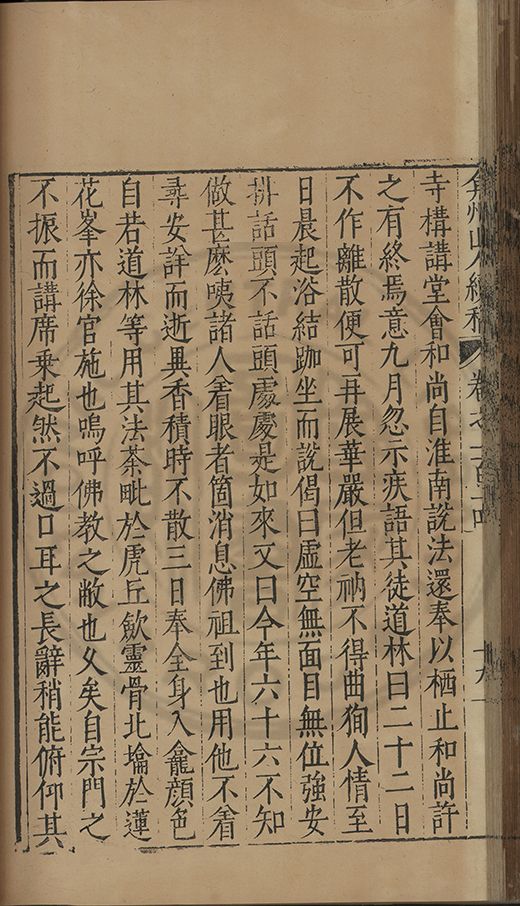 弇州山人續稿 卷之一百十四 十九
寺構講堂會和尚自淮南說法還奉以栖止和尚許
之有終焉意九月忽示疾語其徒道林曰二十二日
不作離散便可再展華嚴但老衲不得曲狥人情至
日晨起浴結跏坐而說偈曰虛空無面目無位強安
排話頭不話頭處處是如來又曰今年六十六不知
做甚麼咦諸人着眼者箇消息佛祖到也用他不着
尋安詳而逝異香積時不散三日奉全身入龕顏色
自若道林等用其法荼毗於虎丘歛靈骨北墖於蓮
花峯亦徐官施也嗚呼佛教之敝也久矣自宗門之
不振而講席乗起然不過口耳之長辭稍能俯仰其